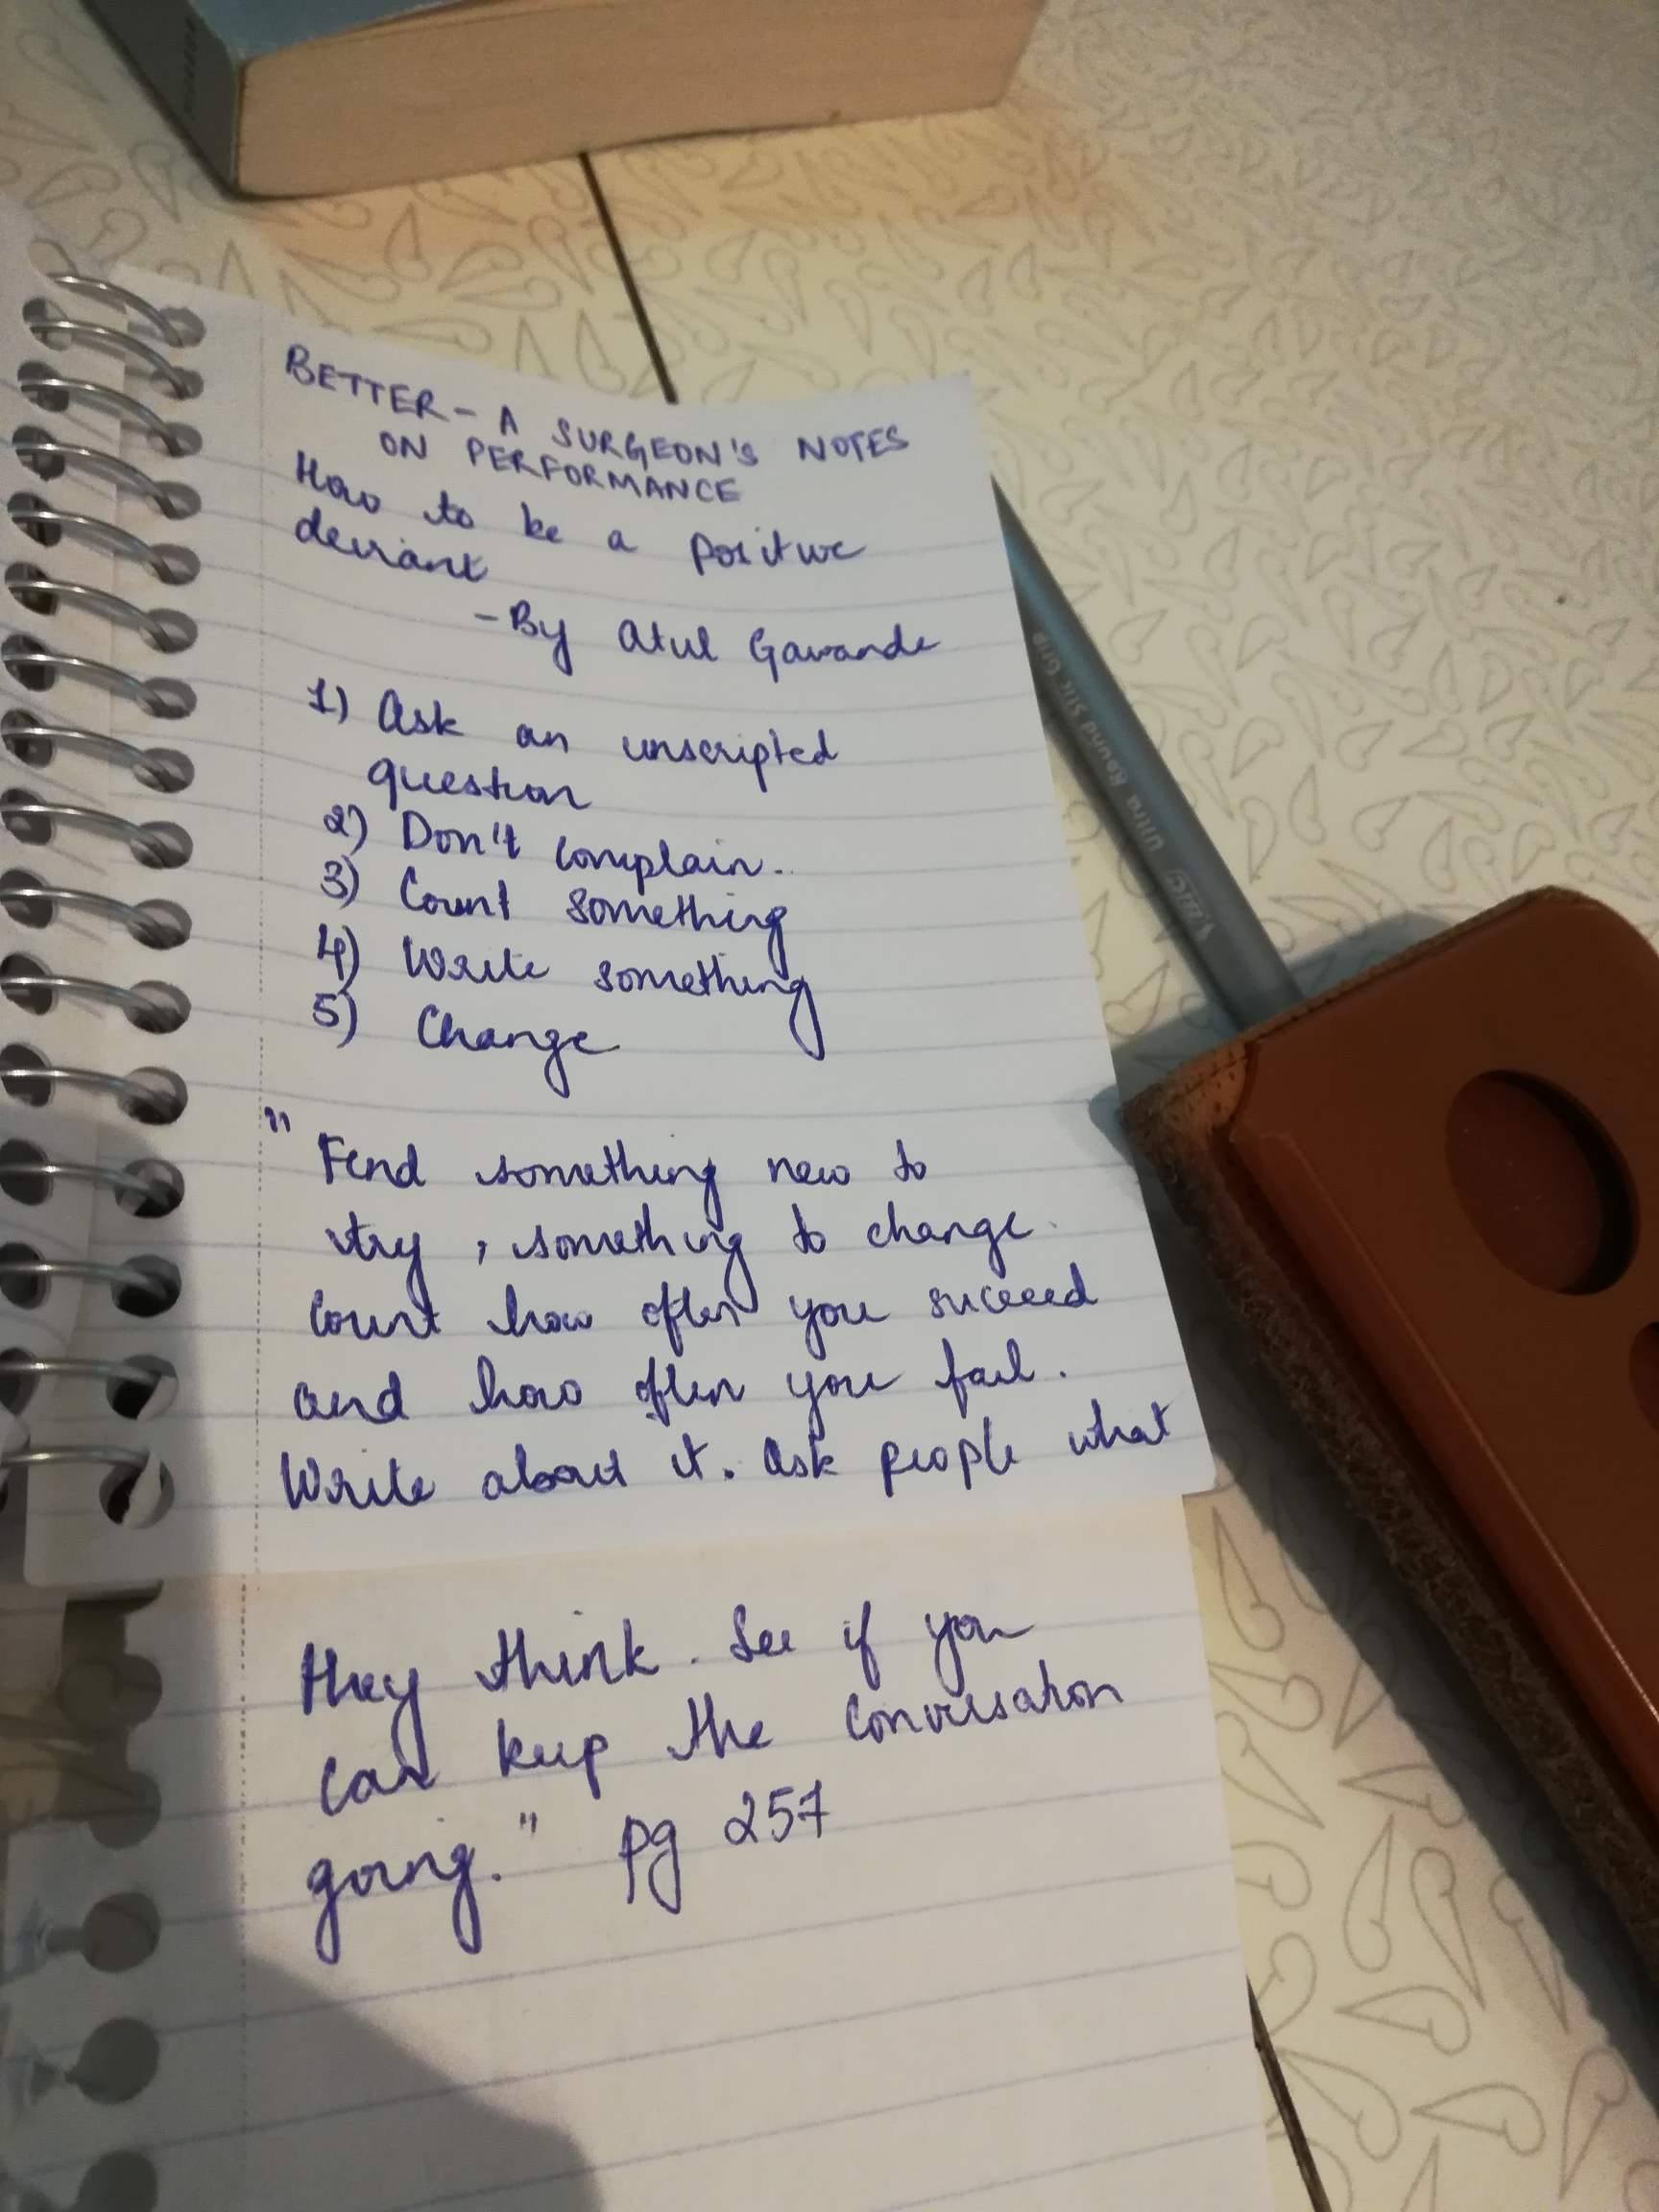 BETTER - A SURGEON'S NOTES
ON PERFORMANCE
How to be a positive
deviant
- By Atul Gawande
1) Ask an unscripted
question
2) Don't complain.
3) Count something
4) Write something
5) Change
" Find something new to
try, something to change.
Count how often you succeed
and how often you fail.
Write about it. Ask people what
they think. See if you
can keep the conversation
going." pg 257
ultra Bound Stic Grip